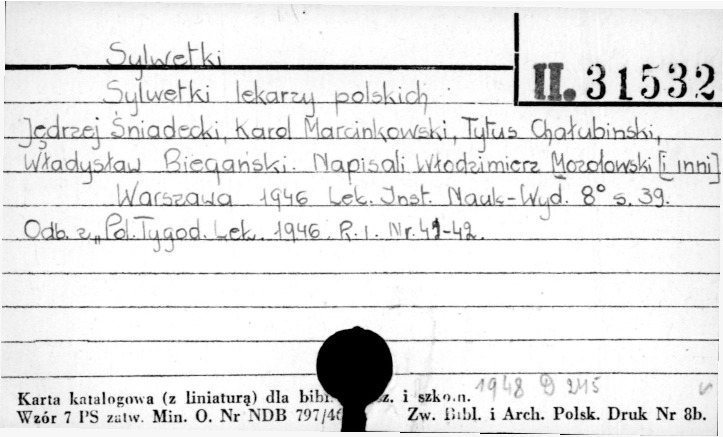 Sylwetki
II. 31532
Sylwetki lekarzy polskich
Jędrzej Śniadecki, Karol Marcinkowski, Tytus Chałubiński,
Władysław Biegański. Napisali Włodzimierz Mozołowski [i inni]
Warszawa 1946 Lek. Inst. Nauk-Wyd. 8° s. 39.
Odb. z „Pol. Tygod. Lek. 1946. R. 1. Nr. 41-42.
1948 D 245
Karta katalogowa (z liniaturą) dla i szkoln.
Wzór 7 PS zatw. Min. O. Nr NDB 797/46 Zw. Bibl. i Arch. Polsk. Druk Nr 8b.